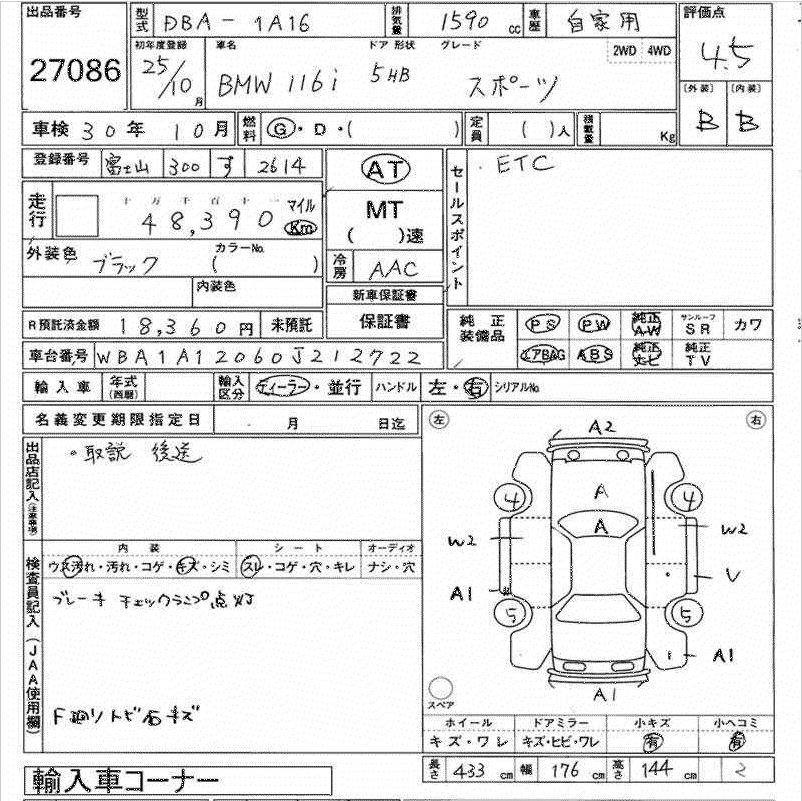 出品番号 27086
型式 DBA-1A16 排気量 1590 cc 車歴 自家用 評価点 4.5
初年度登録 25/10月 車名 BMW 116i ドア 形状 5HB グレード スポーツ 2WD 4WD
〔外装〕 B 〔内装〕 B
車検 30年 10月 燃料 G・D・( ) 定員 ( )人 積載量 Kg
登録番号 富士山 300 す 2614
AT
MT
( )速
セールスポイント ・ETC
走行 十万千百十一 48,390 マイル Km
外装色 ブラック カラーNo. ( )
内装色
冷房 AAC
新車保証書
保証書
R預託済金額 18,360円 未預託
純正装備品 PS PW 純正A・W サンルーフSR カワ
エアBAG ABS 純正ナビ 純正TV
車台番号 WBA1A12060J212722
輸入車 年式(西暦) 輸入区分 ディーラー・並行 ハンドル 左・右 シリアルNo.
名義変更期限指定日 月 日迄
出品店記入(注意事項) ・取説 後送
左 右
A2
A
A
4 4
W2 W2
A1 V
5 5
A1
A1
スペア
内装 シート オーディオ
ウス汚れ・汚れ・コゲ・キズ・シミ スレ・コゲ・穴・キレ ナシ・穴
検査員記入(JAA使用欄)
ブレーキ チェックランプ点灯
F廻り トビ石キズ
ホイール ドアミラー 小キズ 小ヘコミ
キズ・ワレ キズ・ヒビ・ワレ 有 有
長さ 433 cm 幅 176 cm 高さ 144 cm 2
輸入車コーナー